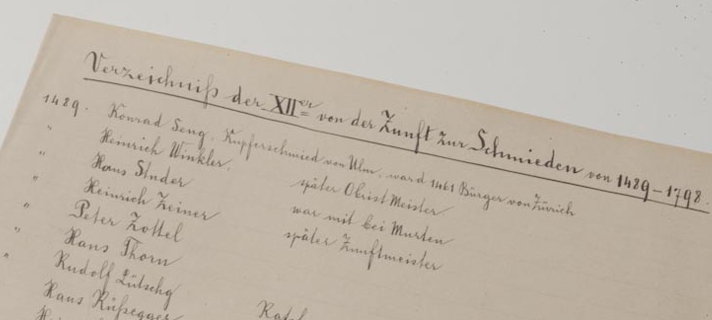 Verzeichniß der XIIer von der Zunft zur Schmieden von 1489-1798.
1489. Konrad Seng, Kupferschmied von Ulm, ward 1461 Bürger von Zürich
" Heinrich Winkler, später Obrist Meister
" Hans Studer war mit bei Murten
" Heinrich Zeiner später Zunftmeister
" Peter Zottel
" Hans Thorn
" Rudolf Lütschg
Hans Rüßegger